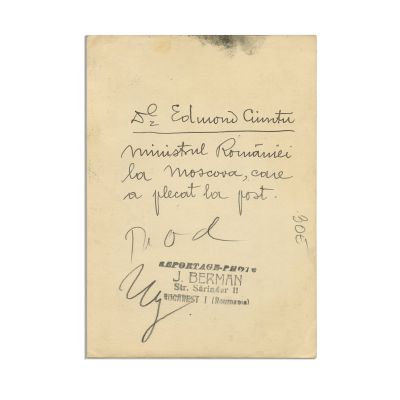 Dl Edmond Ciuntu
ministrul României
la Moscova, care
a plecat la post.
308
REPORTAGE-PHOTO
J. BERMAN
Str. Sărindar 11
BUCAREST I (Roumanie)